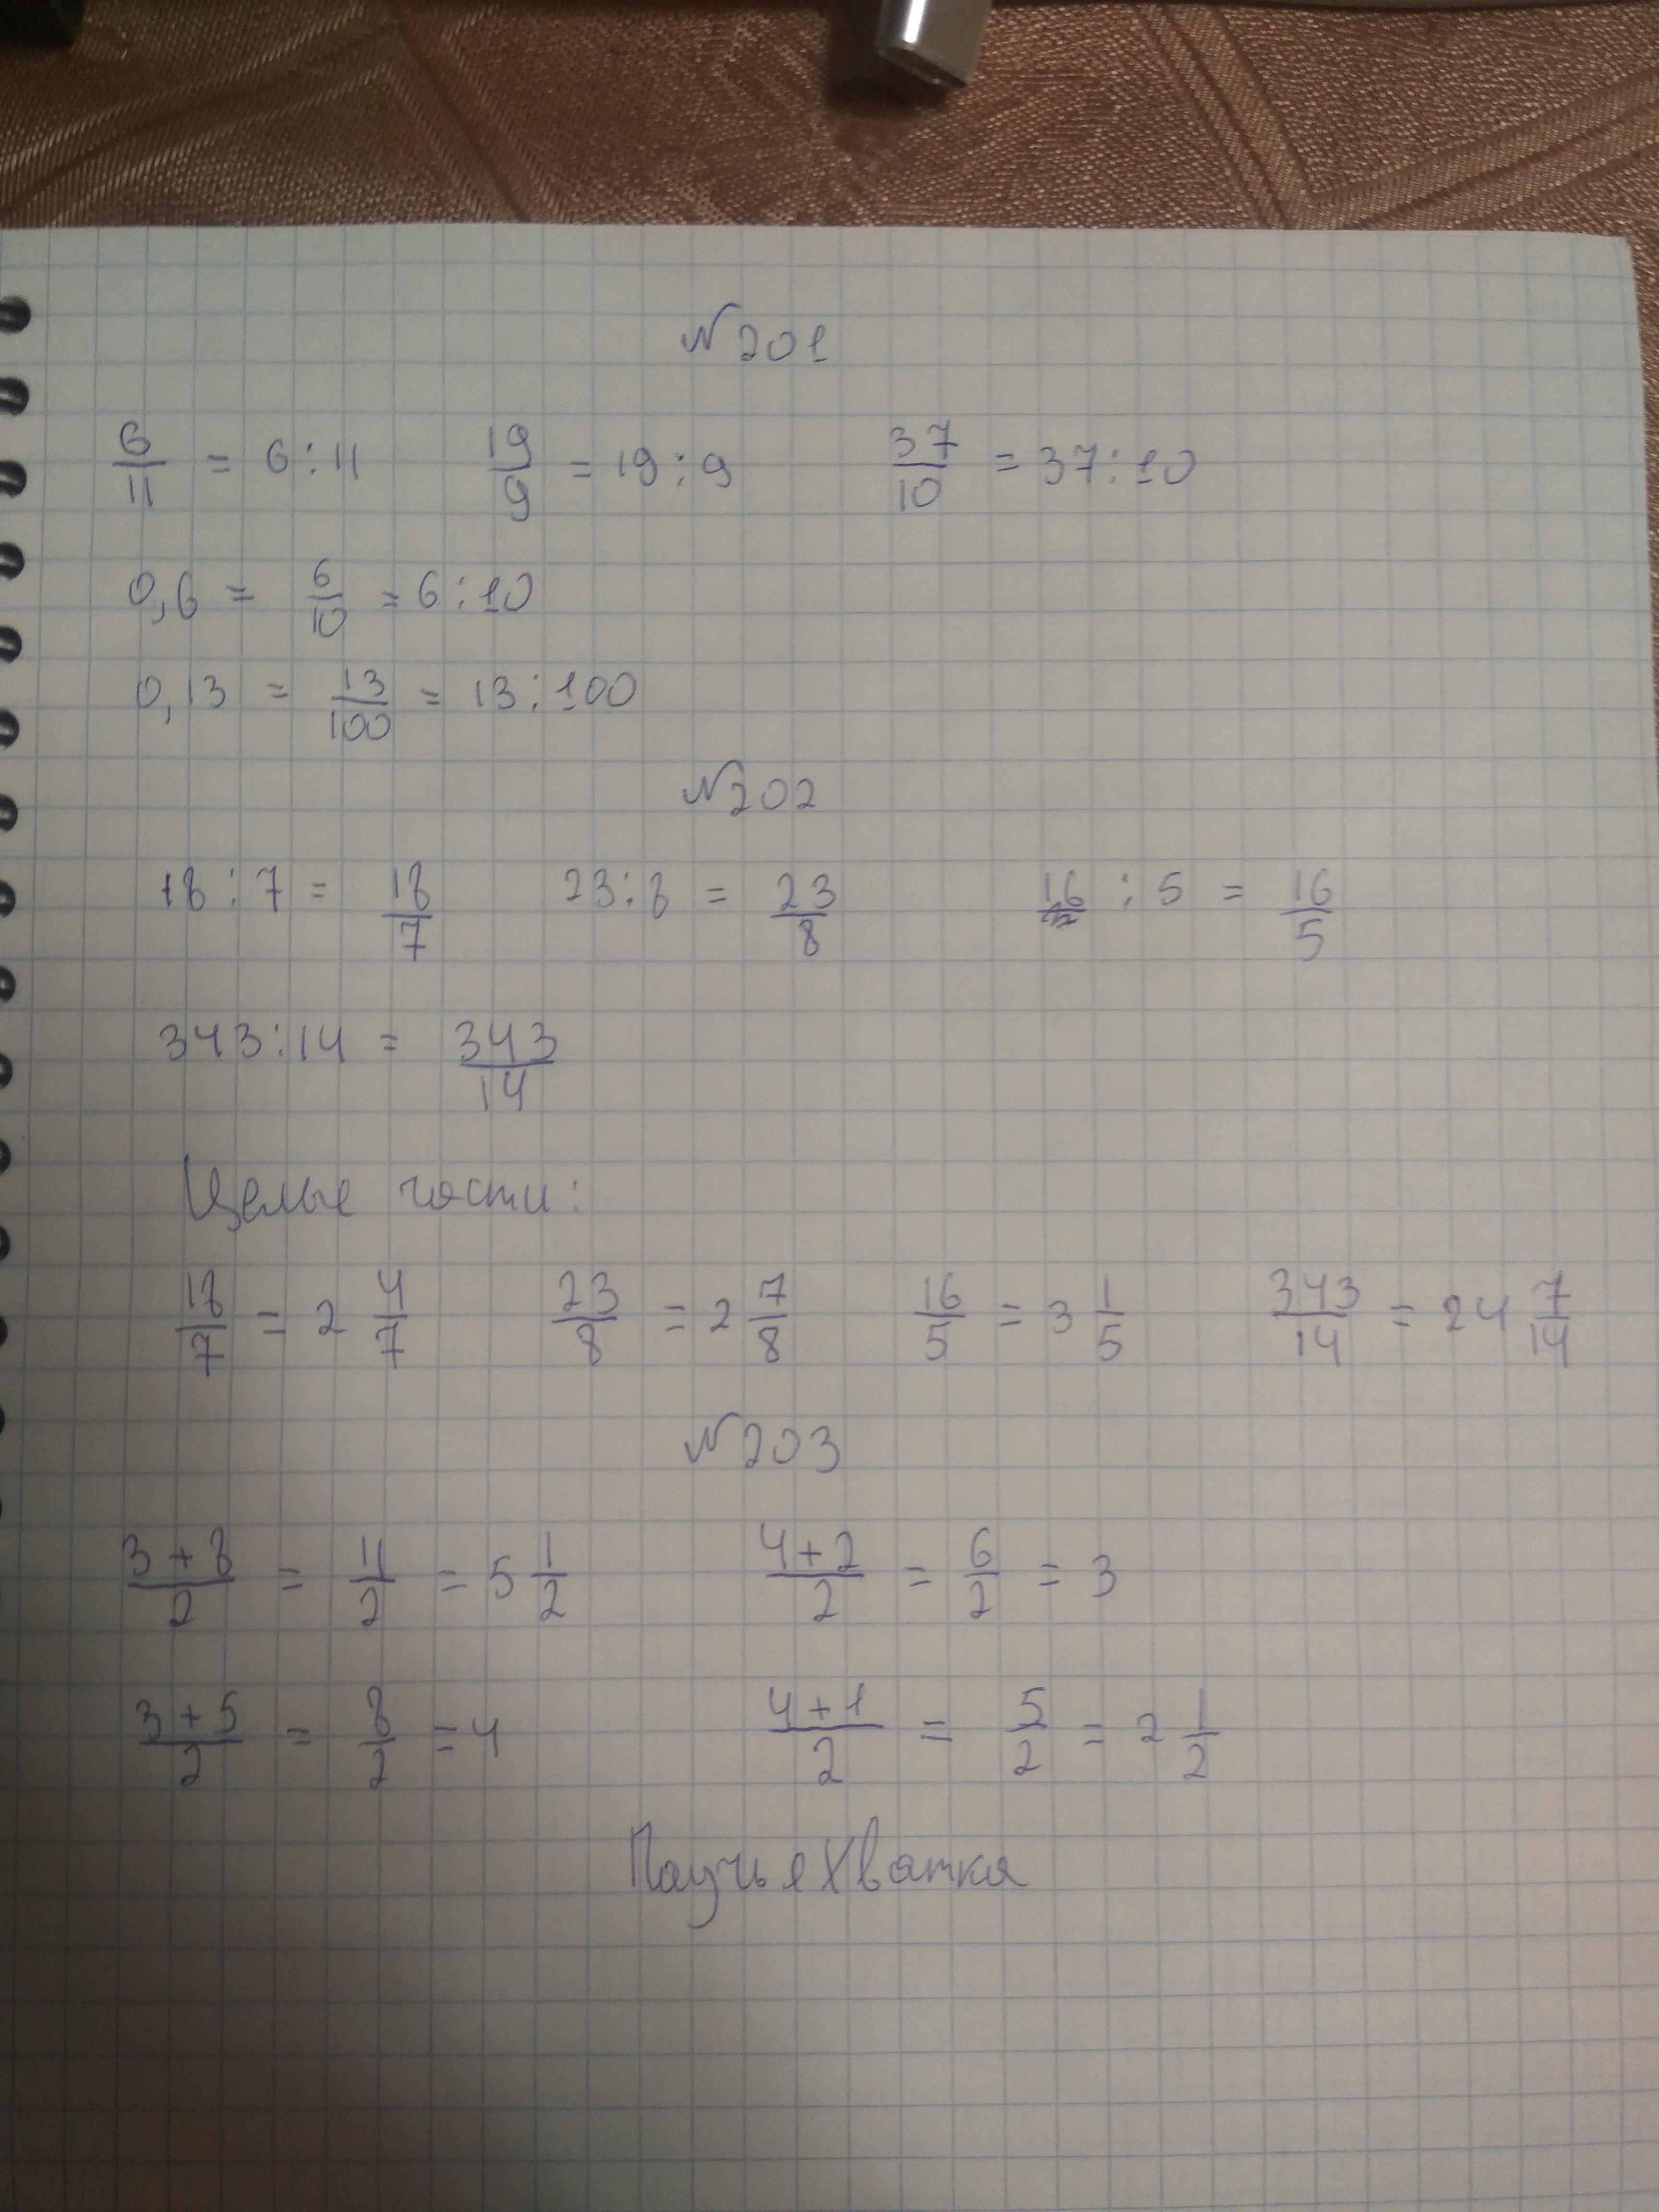 №201
6/11 = 6:11 19/9 = 19:9 37/10 = 37:10
0,6 = 6/10 = 6:10
0,13 = 13/100 = 13:100
№202
18:7 = 18/7 23:8 = 23/8 16:5 = 16/5
343:14 = 343/14
Целые части:
18/7 = 2 4/7 23/8 = 2 7/8 16/5 = 3 1/5 343/14 = 24 7/14
№203
3+8/2 = 11/2 = 5 1/2 4+2/2 = 6/2 = 3
3+5/2 = 8/2 = 4 4+1/2 = 5/2 = 2 1/2
Паучья Хватка